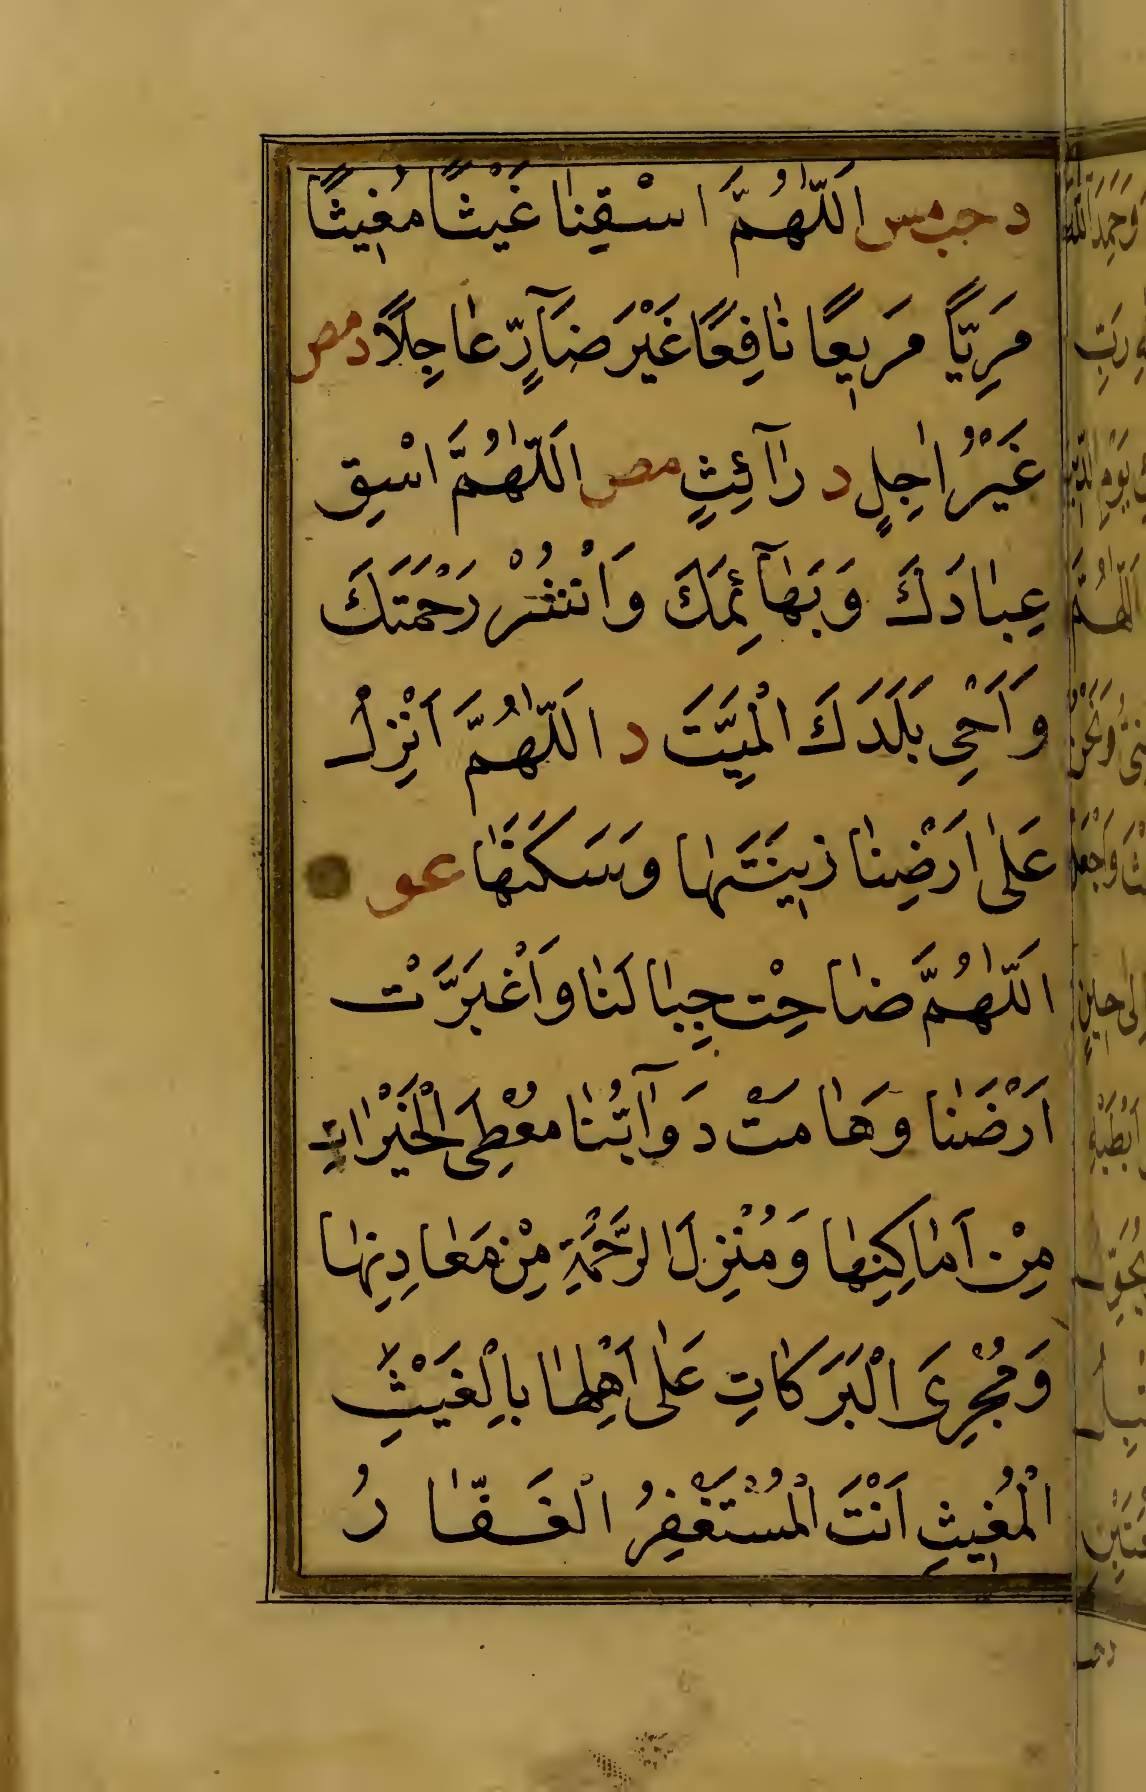 د حب مس اَللّٰهُمَّ اسْقِنٰا غَيْثًا مُغٖيثًا
مَرِيًّا مَرٖيعًا نٰافِعًا غَيْرَ ضَآرٍّ عٰاجِلًا د مص
غَيْرُ اٰجِلٍ د رٰآئِثٍ مص اَللّٰهُمَّ اسْقِ
عِبٰادَكَ وَبَهٰآئِمَكَ وَانْشُرْ رَحْمَتَكَ
وَاَحْيِ بَلَدَكَ الْمَيِّتَ د اَللّٰهُمَّ اَنْزِلْ
عَلٰى اَرْضِنٰا زٖينَتَهٰا وَسَكَنَهٰا عو
اَللّٰهُمَّ ضٰاحِتْ جِبٰالَنٰا وَاَغْبَرَّتْ
اَرْضَنٰا وَهٰامَتْ دَوٰآبُّنٰا مُعْطِىَ الْخَيْرٰاتِ
مِنْ اَمٰاكِنِهٰا وَمُنْزِلَ الرَّحْمَةِ مِنْ مَعٰادِنِهٰا
وَمُجْرِىَ الْبَرَكٰاتِ عَلٰى اَهْلِهٰا بِالْغَيْثِ
الْمُغٖيثِ اَنْتَ الْمُسْتَغْفِرُ الْغَفّٰارُ